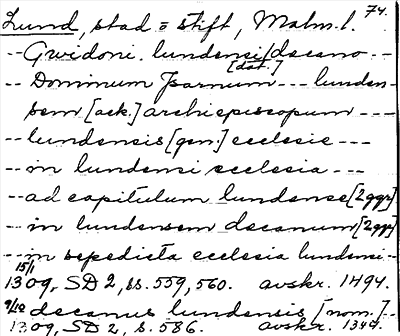 Lund, stad o stift, Malm. l. 74.
-- Gwidoni lundensi [dat.] decano --
-- Dominum Isarnum --- lunden-
sem [ack.] archiepiscopum ---
-- lundensis [gen.] ecclesie ---
-- in lundensi ecclesia ---
-- ad capitulum lundense [2 ggr]
-- in lundensem decanum [2 ggr]
-- in sepedicta ecclesia lundensi --
15/1 1309, SD 2, ss. 559, 560. avskr. 1494.
9/10 decanus lundensis [nom.] --
1309, SD 2, s. 586. avskr. 1344.